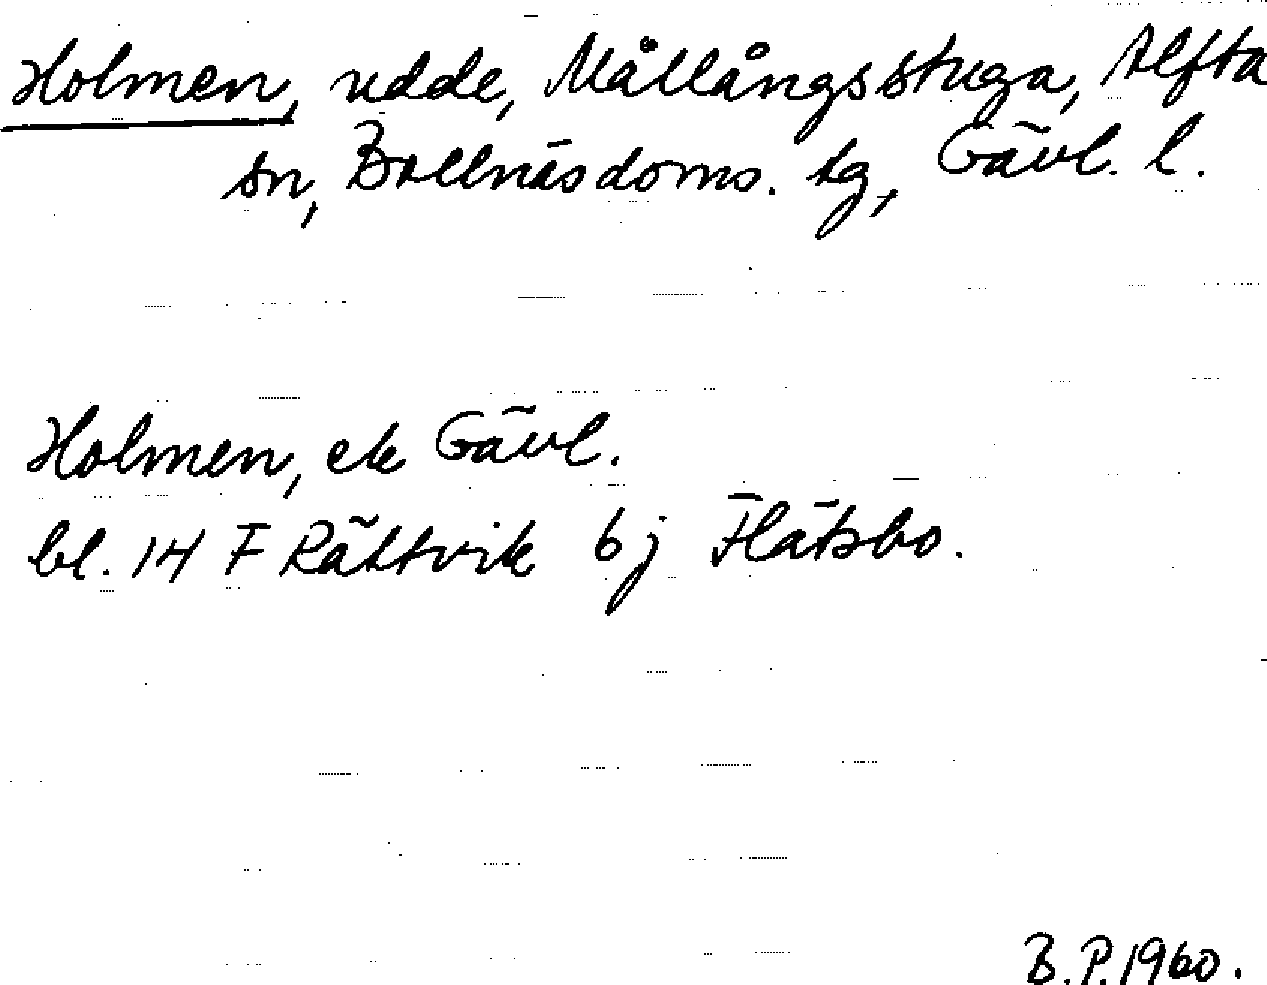 Holmen, udde, Mållångsstuga, Alfta
sn, Bollnäs doms. tg, Gävl. l.
Holmen, ek Gävl.
bl. 14 F Rättvik 6 j Flätsbo.
B.P. 1960.